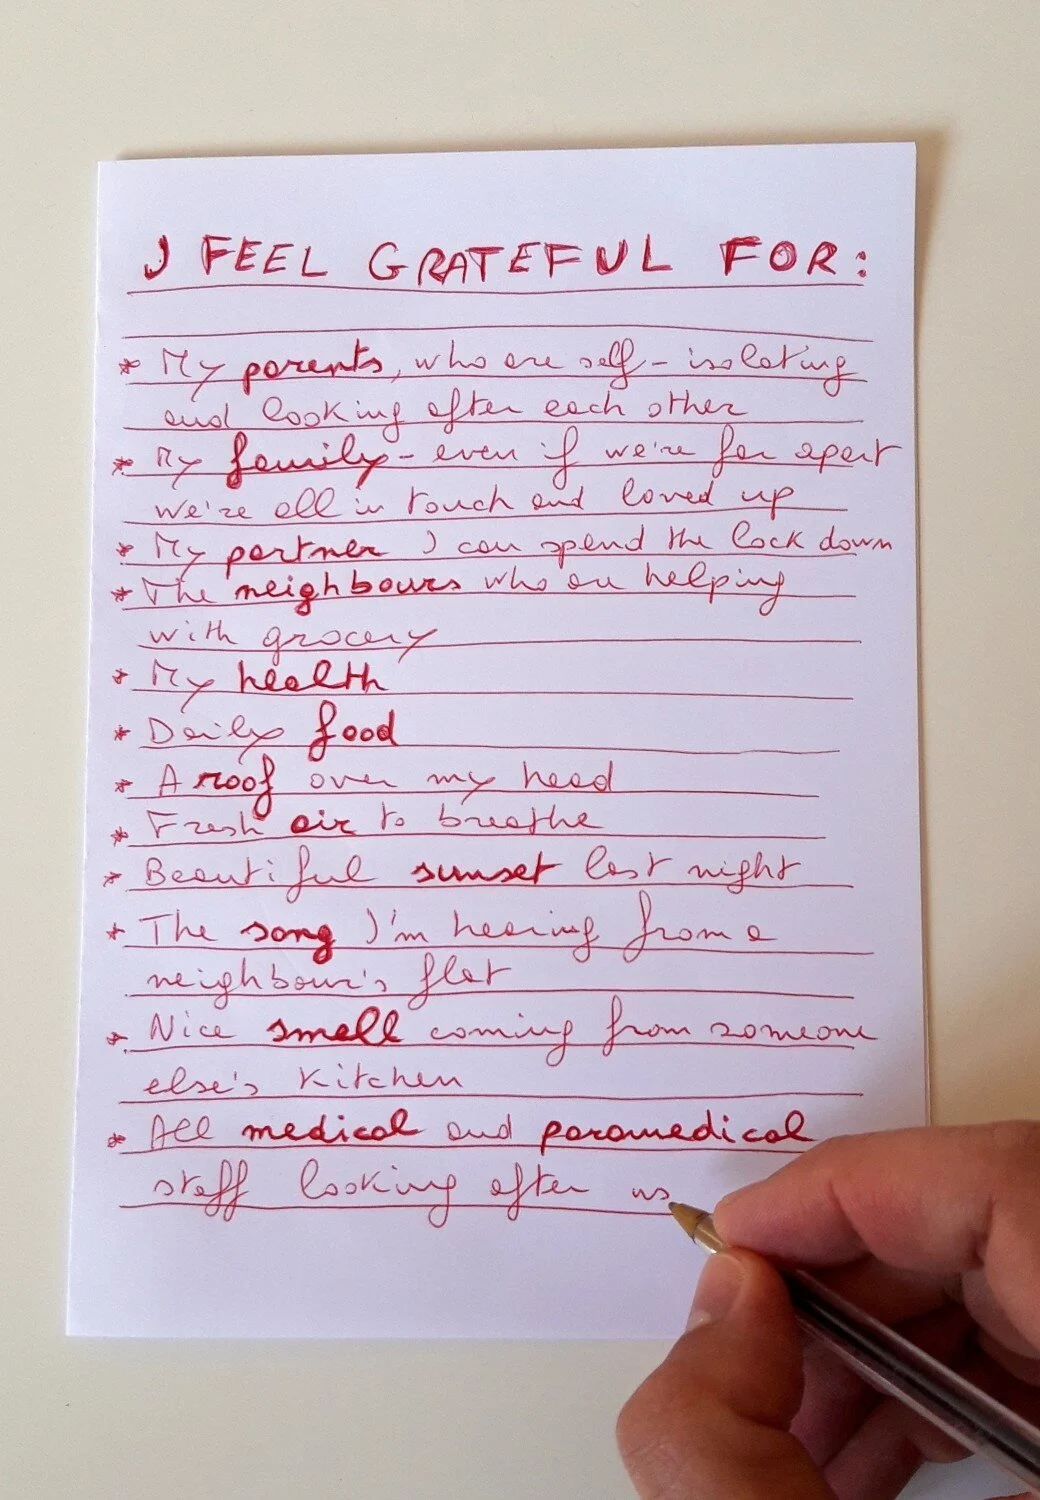 I FEEL GRATEFUL FOR:
* My parents, who are self-isolating
and looking after each other
* My family - even if we're far apart
we're all in touch and loved up
* My partner I can spend the lock down
* The neighbours who are helping
with grocery
* My health
* Daily food
* A roof over my head
* Fresh air to breathe
* Beautiful sunset last night
* The song I'm hearing from a
neighbour's flat
* Nice smell coming from someone
else's kitchen
* All medical and paramedical
staff looking after us